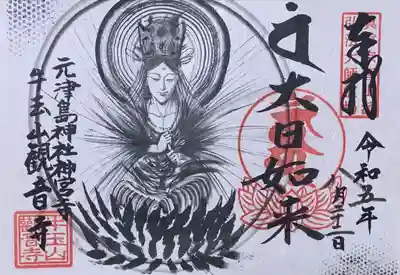 奉拝
令和五年
八月二十一日
大日如来
元津島神社神宮寺
牛玉山観音寺
牛玉山
觀音寺